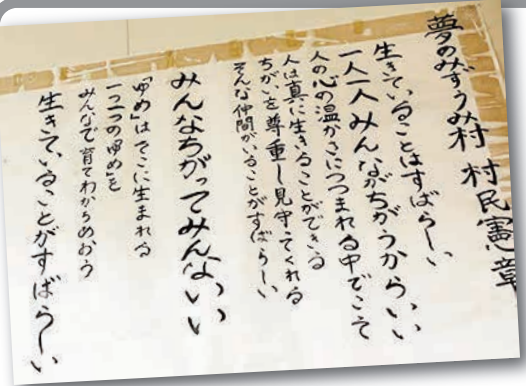 夢のみずうみ村 村民憲章
生きていることはすばらしい
一人一人みんながちがうからいい
人の心の温かさにつつまれる中でこそ
人は真に生きることができる
ちがいを尊重し見守ってくれる
そんな仲間がいることがすばらしい
みんなちがってみんないい
「ゆめ」はそこに生まれる
一つ一つの「ゆめ」を
みんなで育てわかちあおう
生きていることがすばらしい